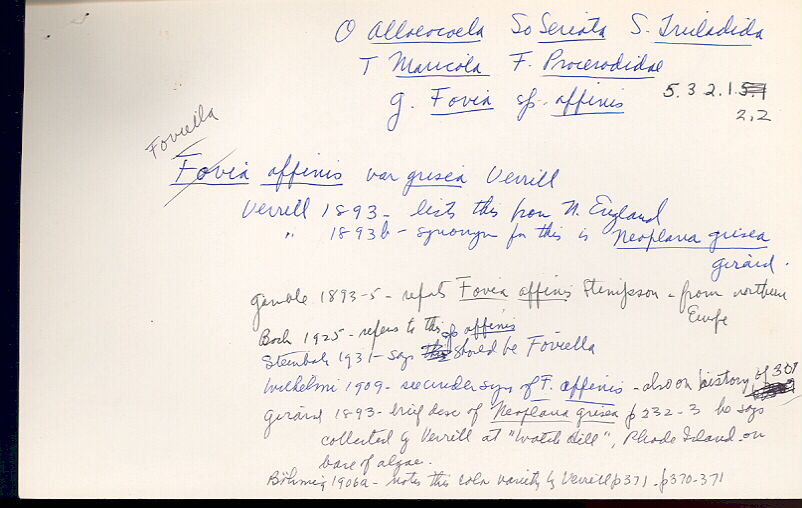 O Alloeocoela So Seriata S. Tricladida
T Maricola F. Procerodidae
g. Fovia sp. affinis 5.3.2.1.5.1
2.2
Foviella
Fovia affinis var grisea Verrill
Verrill 1893 - lists this from N. England
" 1893b - synonym for this is Neoplana grisea
Girard.
Gamble 1893-5 - refuts Fovia affinis Stimpson - from northern
Europe
Bock 1925 - refers to this sp affinis
Steinbock 1931 - says this should be Foviella
Wilhelmi 1909 - see under syn of F. affinis - also on history of 301
Girard 1893 - brief desc of Neoplana grisea p 232-3 he says
collected by Verrill at "Watch Hill", Rhode Island on
base of algae.
Böhmig 1906a - notes this color variety by Verrill p371 - p370-371